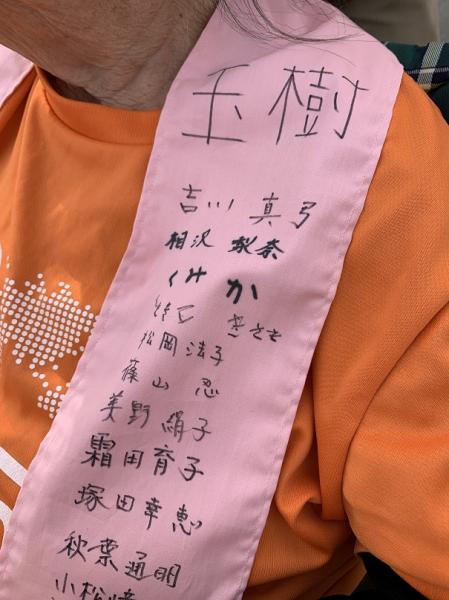 玉樹
吉川 真弓
相沢 梨奈
くみ か
松岡 法子
篠山 忍
美野 絹子
霜田育子
塚田幸恵
秋葉通明
小松崎